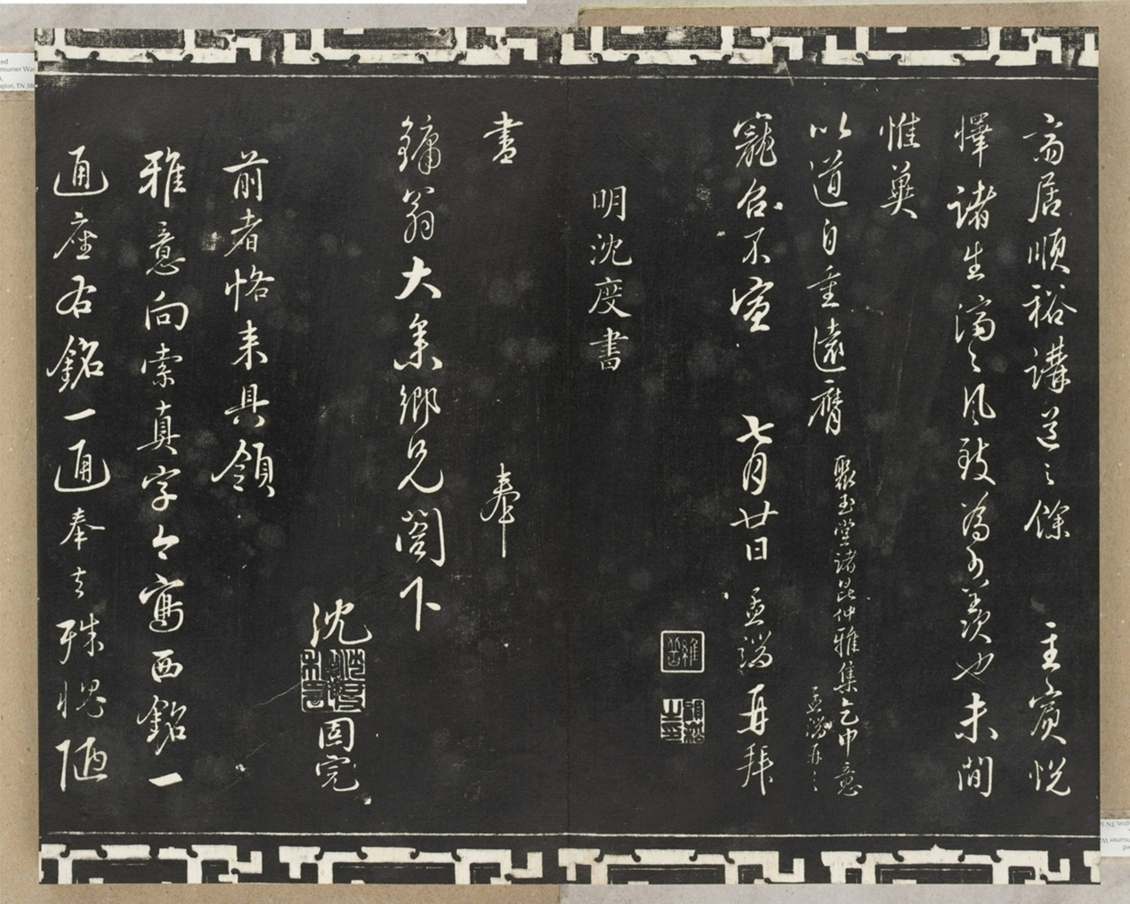 高居順裕講道之餘　主賓悅
懌諸生濟之風致為可羨也未間
惟冀
以道自重遠膺
聚玉堂諸昆仲雅集乞申意
孟端再之
寵召不宣　七月廿日　孟端再拜
明沈度書
書　奉
鏞翁大集鄉兄閣下
沈　固完
前者恪来具領
雅意向索真字今寫西銘一
通座右銘一通奉去殊愧陋